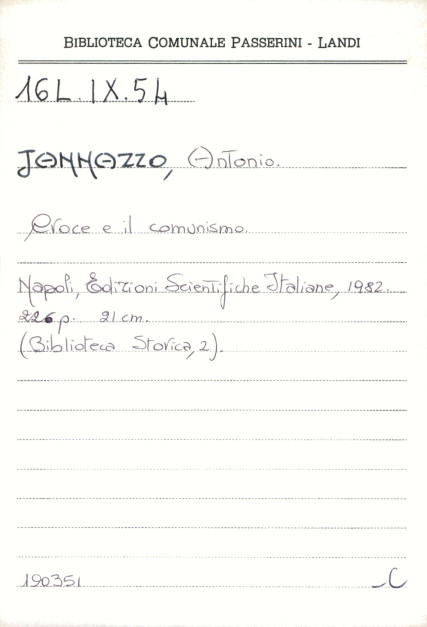 BIBLIOTECA COMUNALE PASSERINI - LANDI
16L.IX.54
JANNAZZO, Antonio.
Croce e il comunismo.
Napoli, Edizioni Scientifiche Italiane, 1982.
226 p. 21 cm.
(Biblioteca Storica, 2).
190351 -C